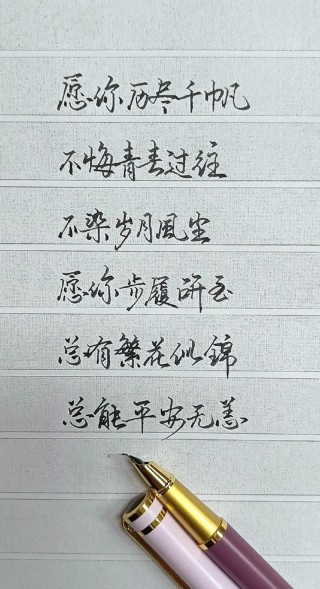 愿你历尽千帆
不悔青春过往
不染岁月風尘
愿你步履所至
总有繁花似锦
总能平安无恙